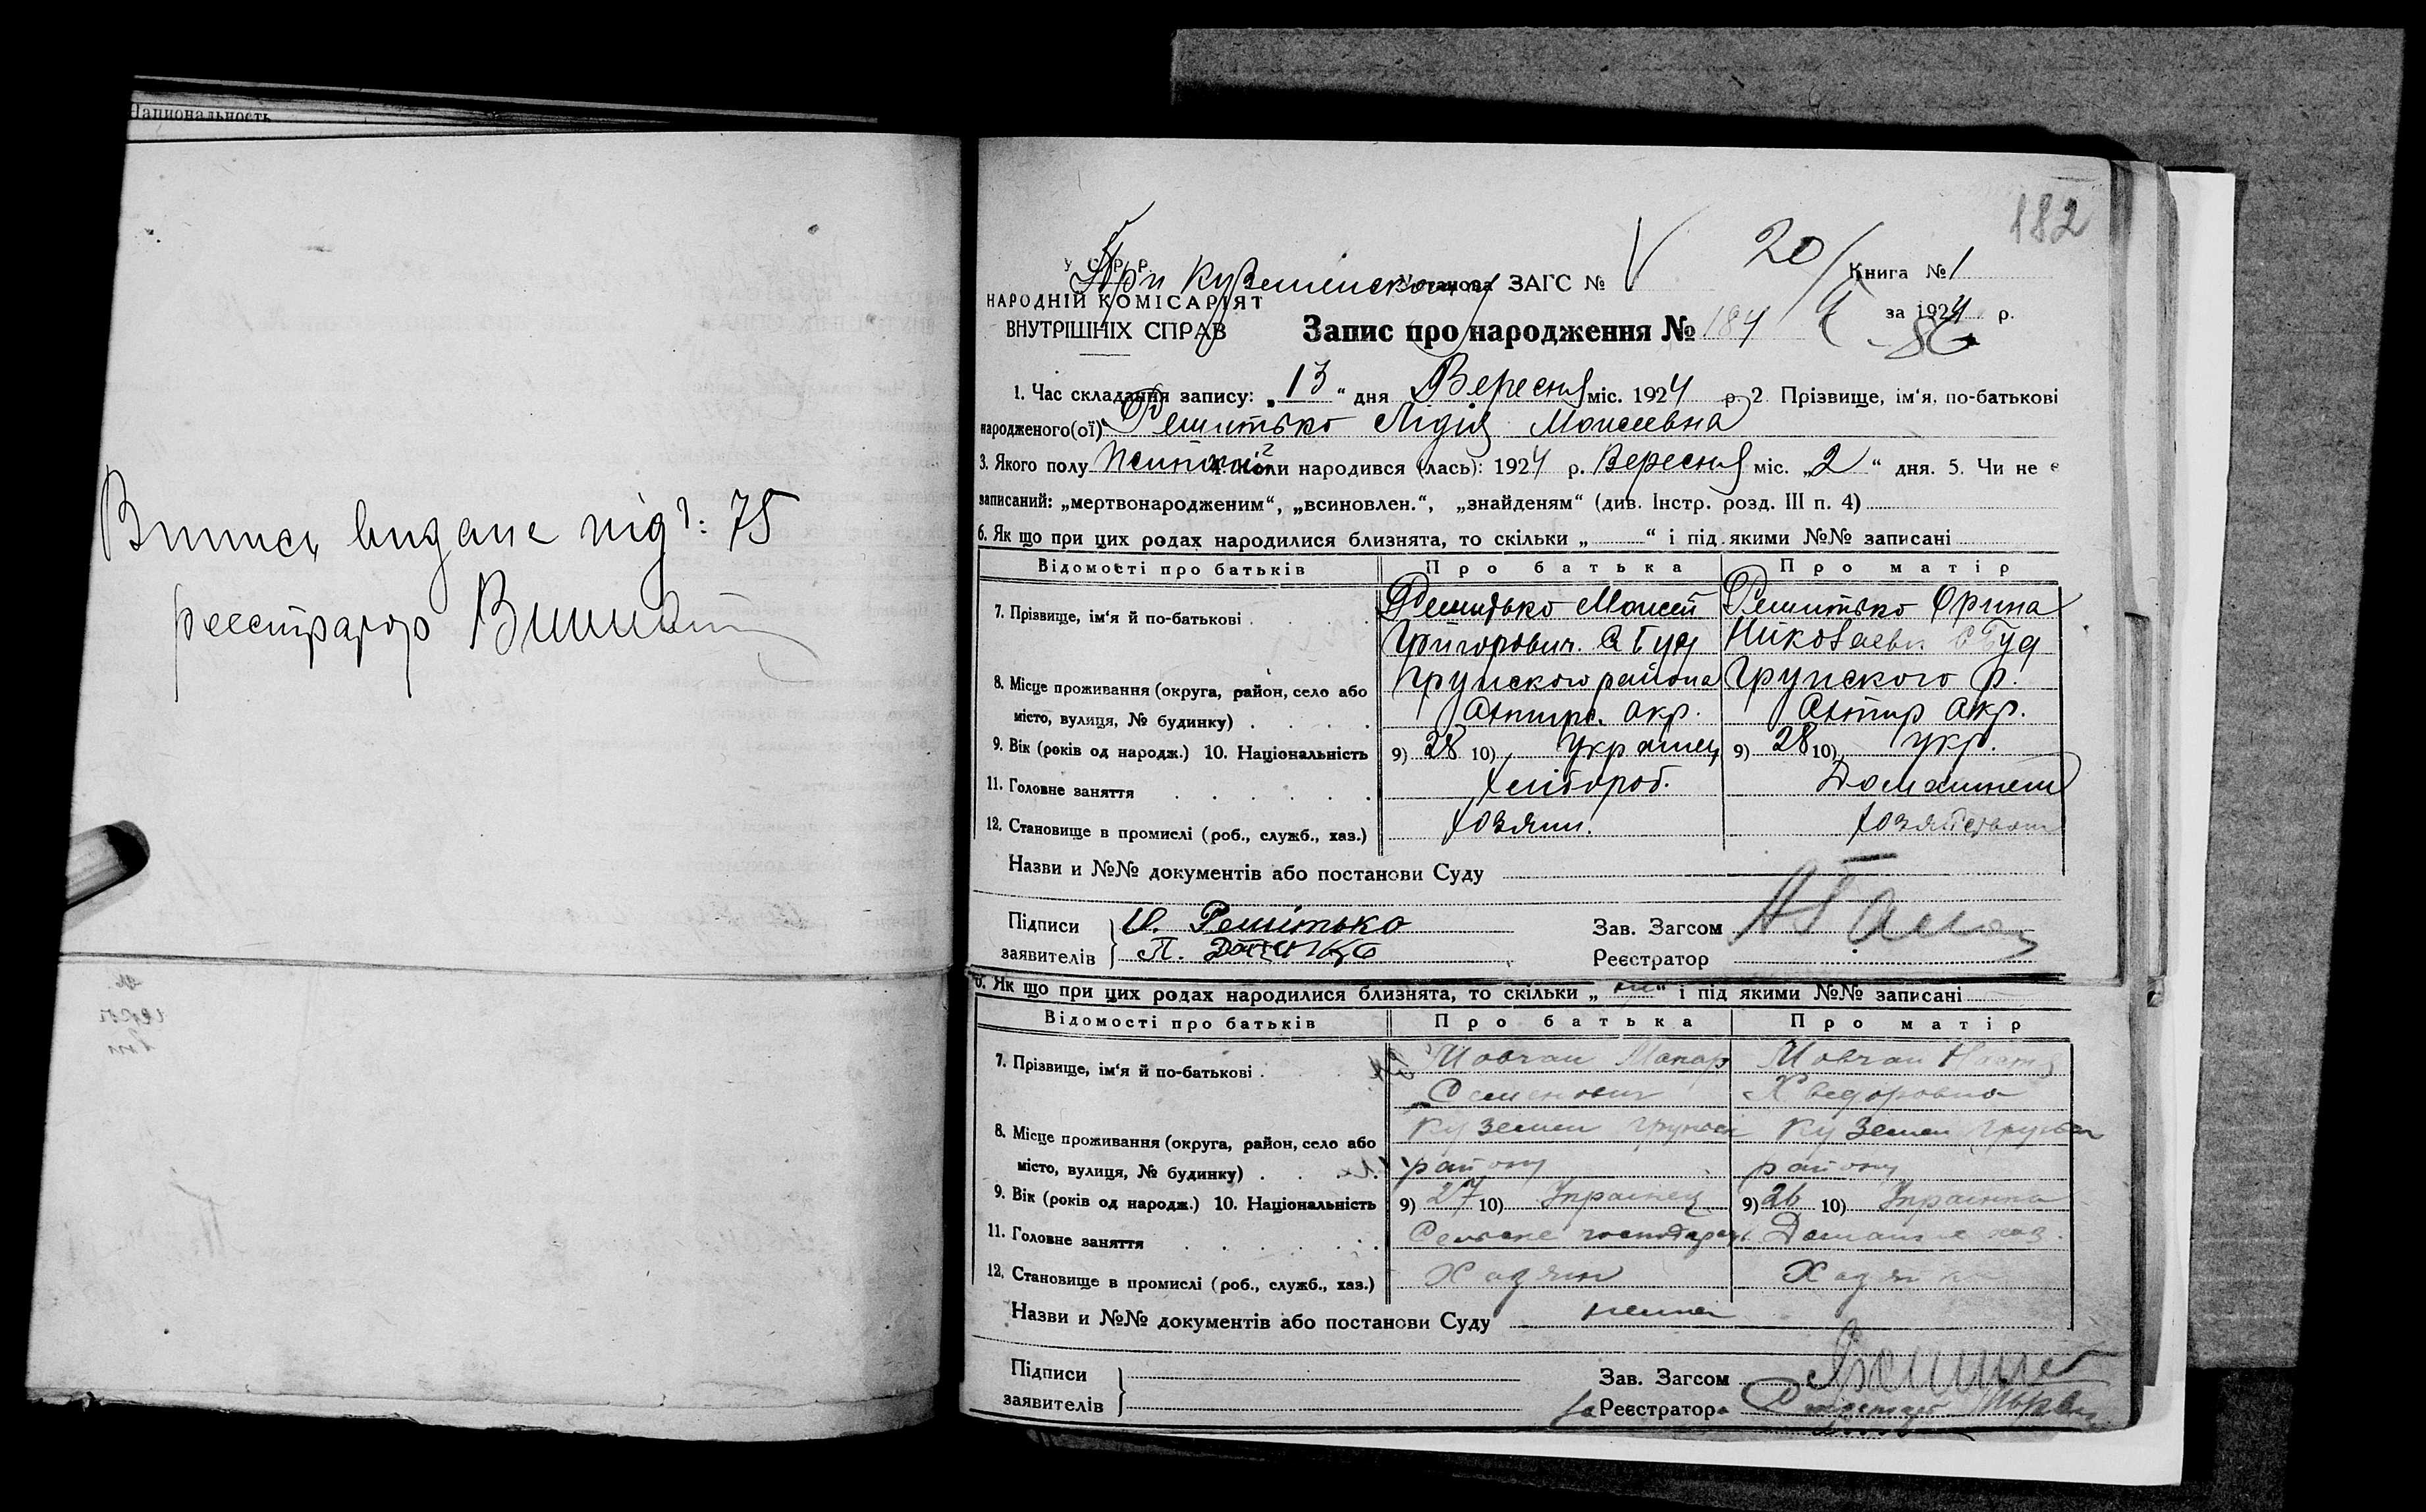 Національность
Виписку видане під №: 75
реєстратор
182
У. С. Р. Р.
При Куземинском
Установа ЗАГС №
20/
Книга № 1
НАРОДНІЙ КОМІСАРІЯТ
ВНУТРІШНІХ СПРАВ
за 1924 р.
Запис про народження № 184
86
1. Час складання запису: „13“ дня Вересня міс. 1924 р. 2 Прізвище, ім‘я, по-батькові
народженого(ої) Решитько Лідія Моисеевна
3. Якого полу женской 4. Коли народився (лась): 1924 р. Вересня міс. „2“ дня. 5. Чи не є
записаний: „мертвонародженим“, „всиновлен.“, „знайденям“ (див. Інстр. розд. III п. 4)
6. Як що при цих родах народилися близнята, то скільки „ “ і під якими №№ записані
Відомості про батьків Про батька Про матір
7. Прізвище, ім‘я й по-батькові Решитько Моисей Решитько Орина
Григорович. С Буд Николаевн. С Буд
8. Місце проживання (округа, район, село або Грунского района Грунского р.
місто, вулиця, № будинку) Охтирс. окр. Охтир окр.
9. Вік (років од народж.) 10. Національність 9) 28 10) Українец 9) 28 10) укр.
11. Головне заняття хлібороб. Домашнем
12. Становище в промислі (роб., служб., хаз.) хозяин. хозяйством
Назви и №№ документів або постанови Суду
Підписи И. Решітько Зав. Загсом
заявителів П. Реєстратор
6. Як що при цих родах народилися близнята, то скільки „ “ і під якими №№ записані
Відомості про батьків Про батька Про матір
7. Прізвище, ім‘я й по-батькові Мовчан Макар Мовчан Настя
Семенович Хведоровна
8. Місце проживання (округа, район, село або Куземен Грунськ Куземен Грунськ
місто, вулиця, № будинку) району району
9. Вік (років од народж.) 10. Національність 9) 27 10) Українец 9) 26 10) Українка
11. Головне заняття Сельське господарсь. Домашне хоз.
12. Становище в промислі (роб., служб., хаз.) Хазяин Хазяйка
Назви и №№ документів або постанови Суду нема
Підписи Зав. Загсом
заявителів За Реєстратора